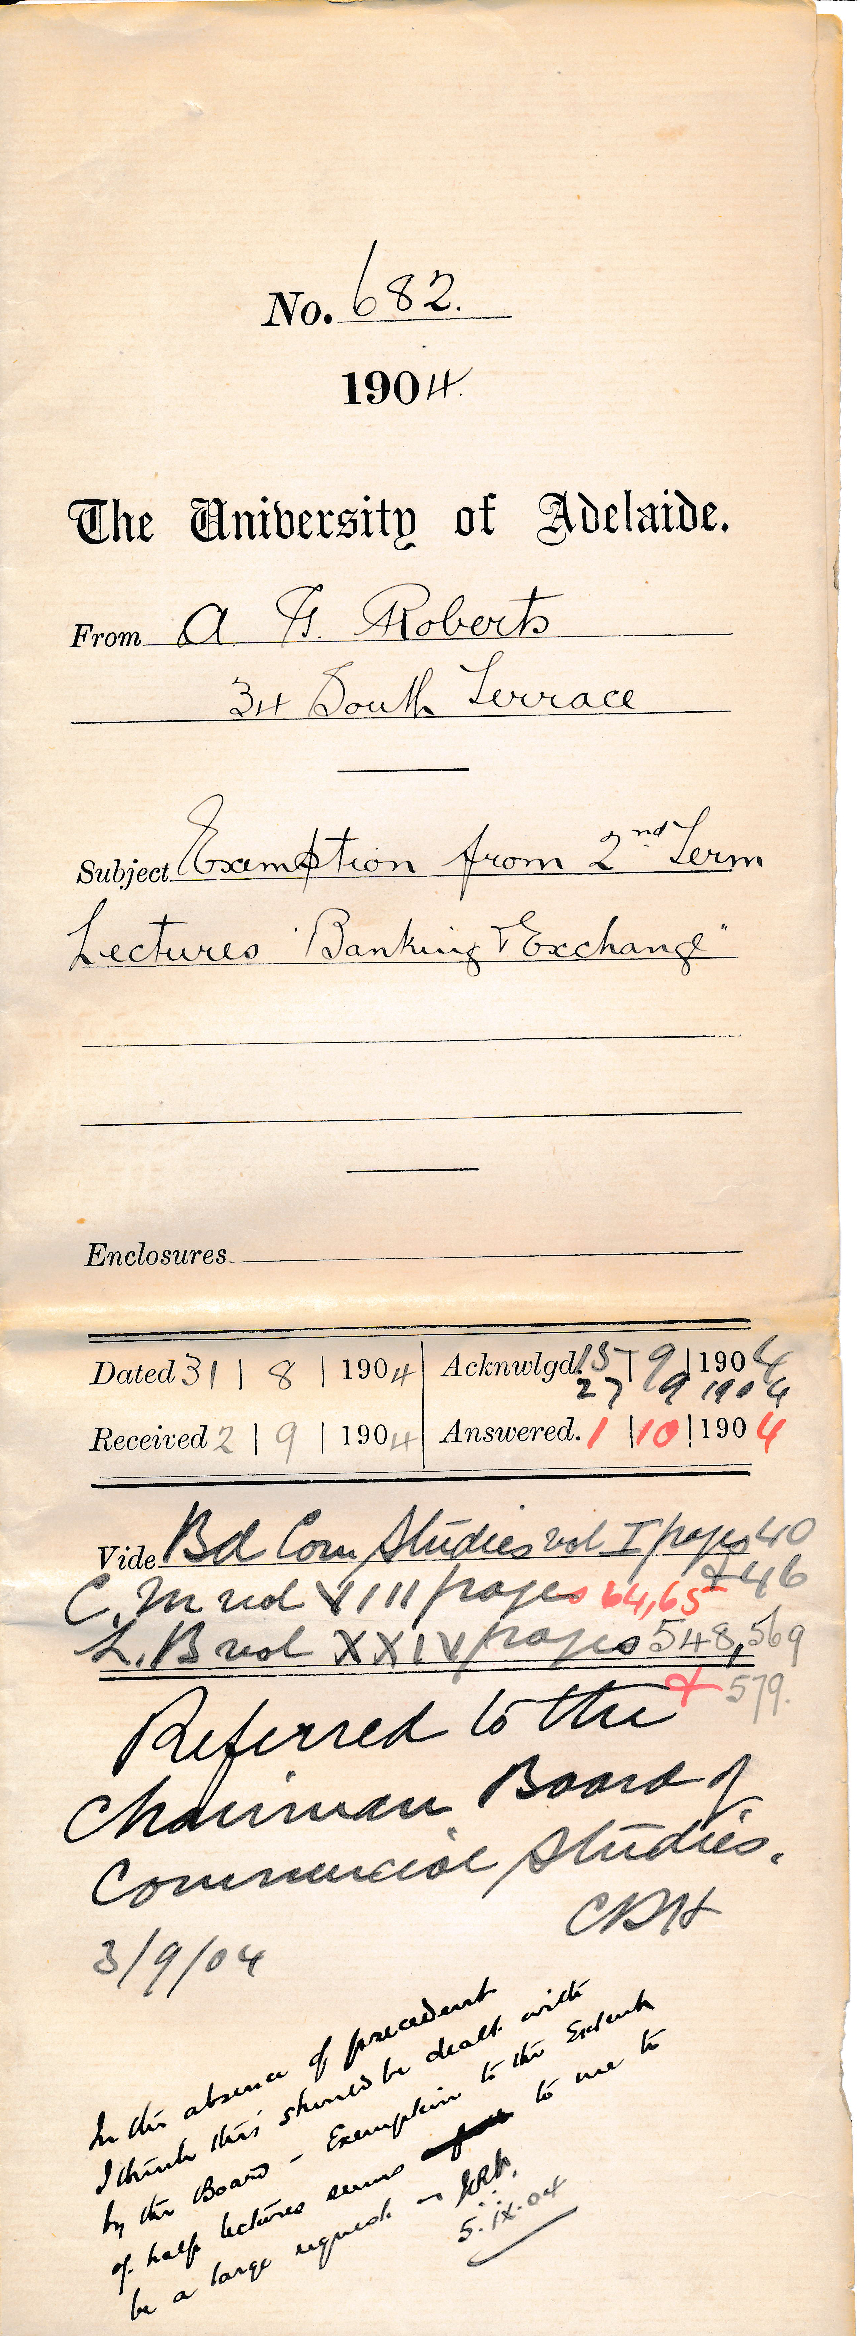 No. 682.
1904.
The University of Adelaide.
From A. G. Roberts
34 South Terrace
Subject Exemption from 2nd Term
Lectures "Banking & Exchange"
Enclosures
Dated 31 | 8 | 1904 Acknwlgd. 15 | 9 | 1904
27 9 1904
Received 2 | 9 | 1904 Answered. 1 | 10 | 1904
Vide Bd Com Studies vol I pages 40
& 46
C.M vol VIII pages 64,65
L.B vol XXIV pages 548, 569
& 579.
Referred to the
Chairman Board of
Commercial Studies.
CRH
3/9/04
In the absence of precedent
I think this should be dealt with
by the Board - Exemption to the Extent
of half lectures seems to me to
be a large request -
5.IX.04